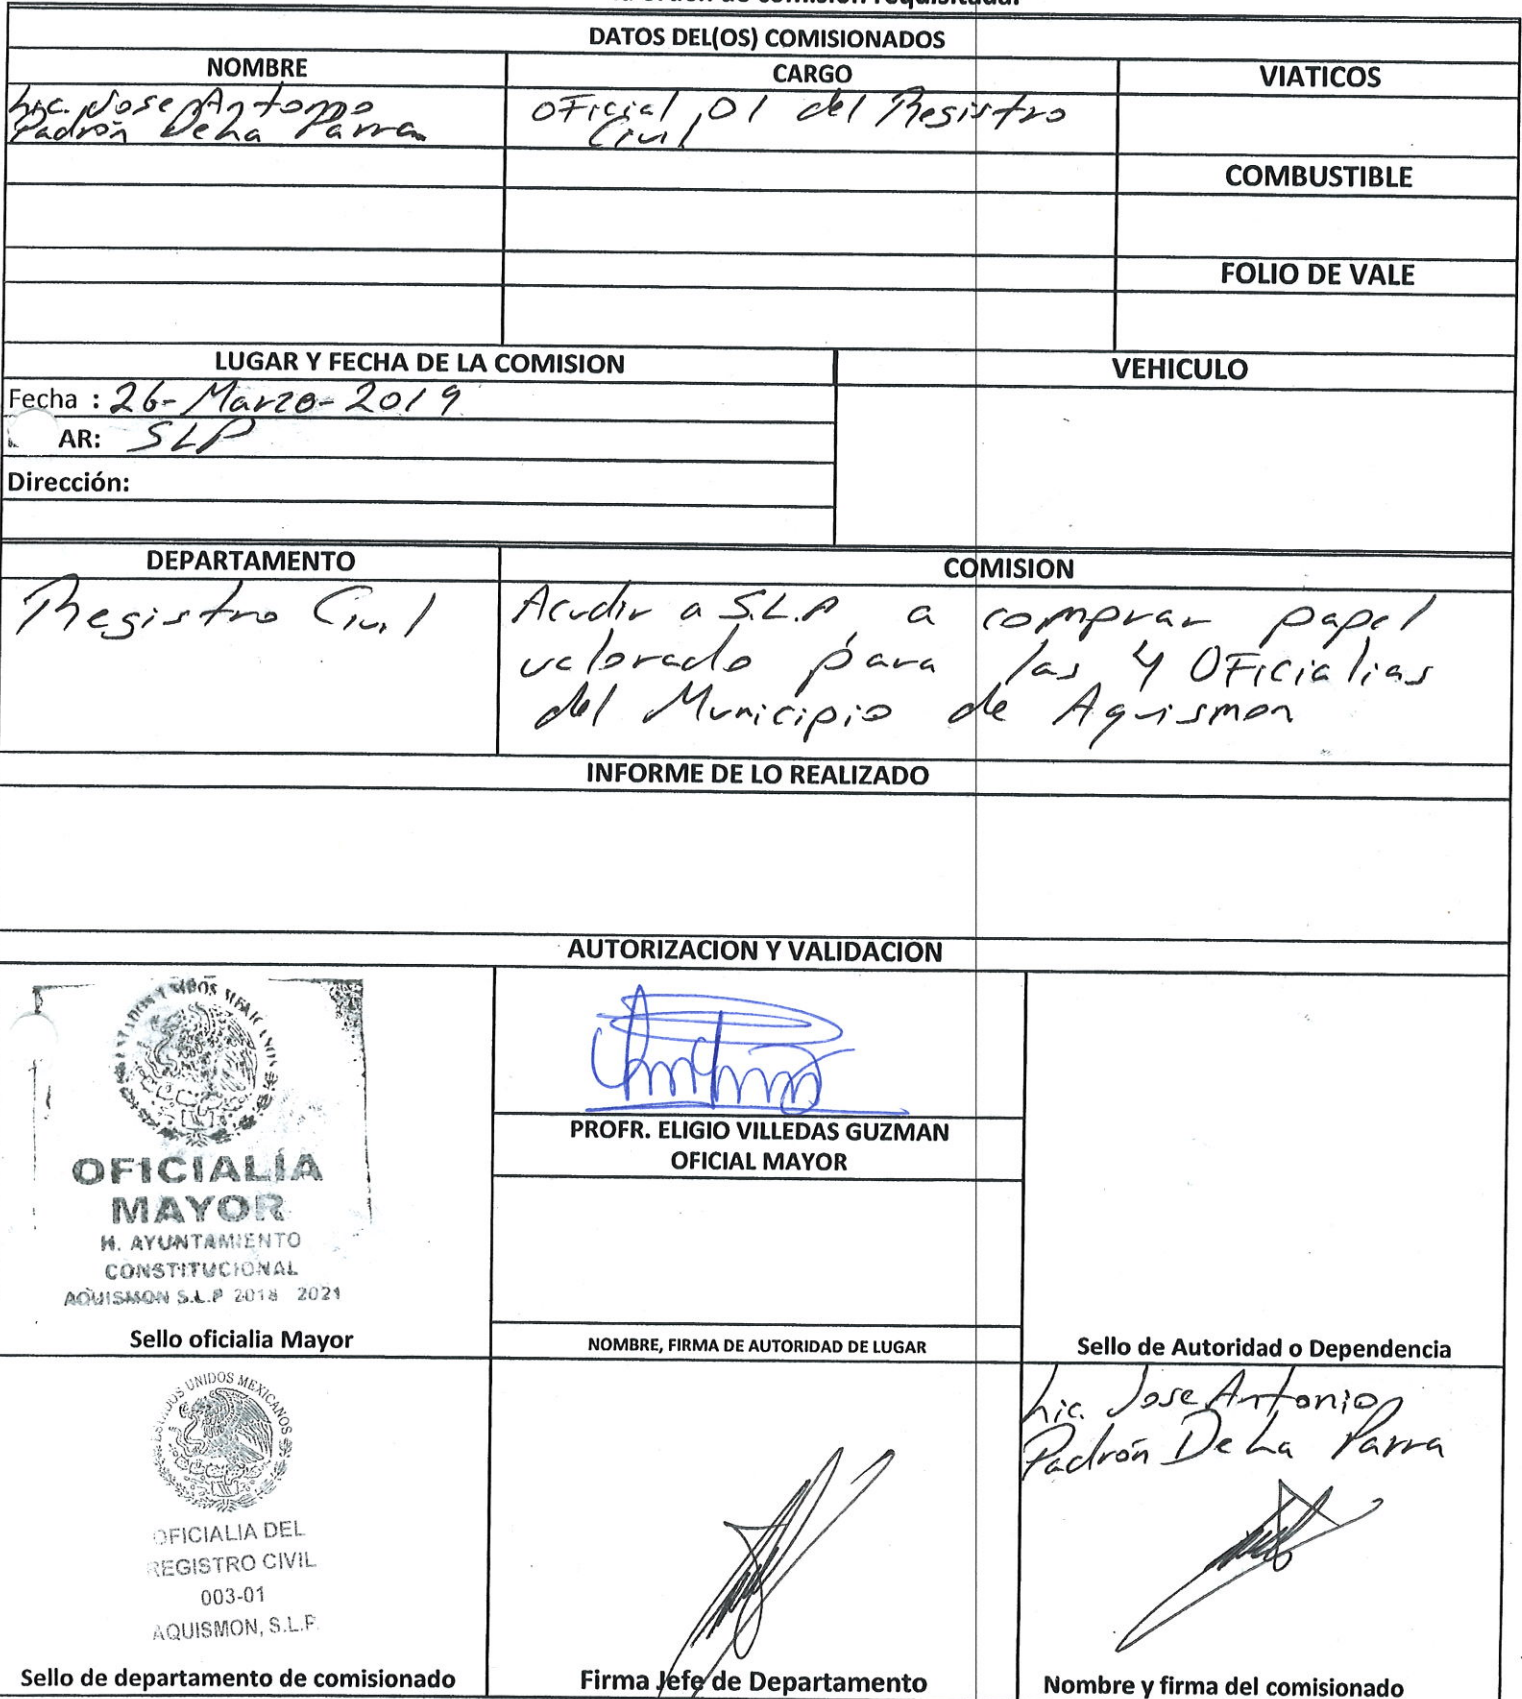 orden de comision requisitada.
DATOS DEL(OS) COMISIONADOS
NOMBRE CARGO VIATICOS
Lic. Jose Antonio
Padrón De La Parra
OFicial 01 del Registro
Civil
COMBUSTIBLE
FOLIO DE VALE
LUGAR Y FECHA DE LA COMISION VEHICULO
Fecha : 26-Marzo-2019
AR: SLP
Dirección:
DEPARTAMENTO COMISION
Registro Civil
Acudir a S.L.P. a comprar papel
valorado para las 4 OFicialias
del Municipio de Aquismon
INFORME DE LO REALIZADO
AUTORIZACION Y VALIDACION
ESTADOS UNIDOS MEXICANOS
OFICIALÍA
MAYOR
H. AYUNTAMIENTO
CONSTITUCIONAL
AQUISMON S.L.P 2018 2021
Sello oficialia Mayor
PROFR. ELIGIO VILLEDAS GUZMAN
OFICIAL MAYOR
NOMBRE, FIRMA DE AUTORIDAD DE LUGAR
Sello de Autoridad o Dependencia
ESTADOS UNIDOS MEXICANOS
OFICIALIA DEL
REGISTRO CIVIL
003-01
AQUISMON, S.L.P.
Sello de departamento de comisionado
Firma Jefe de Departamento
Lic. Jose Antonio
Padrón De La Parra
Nombre y firma del comisionado